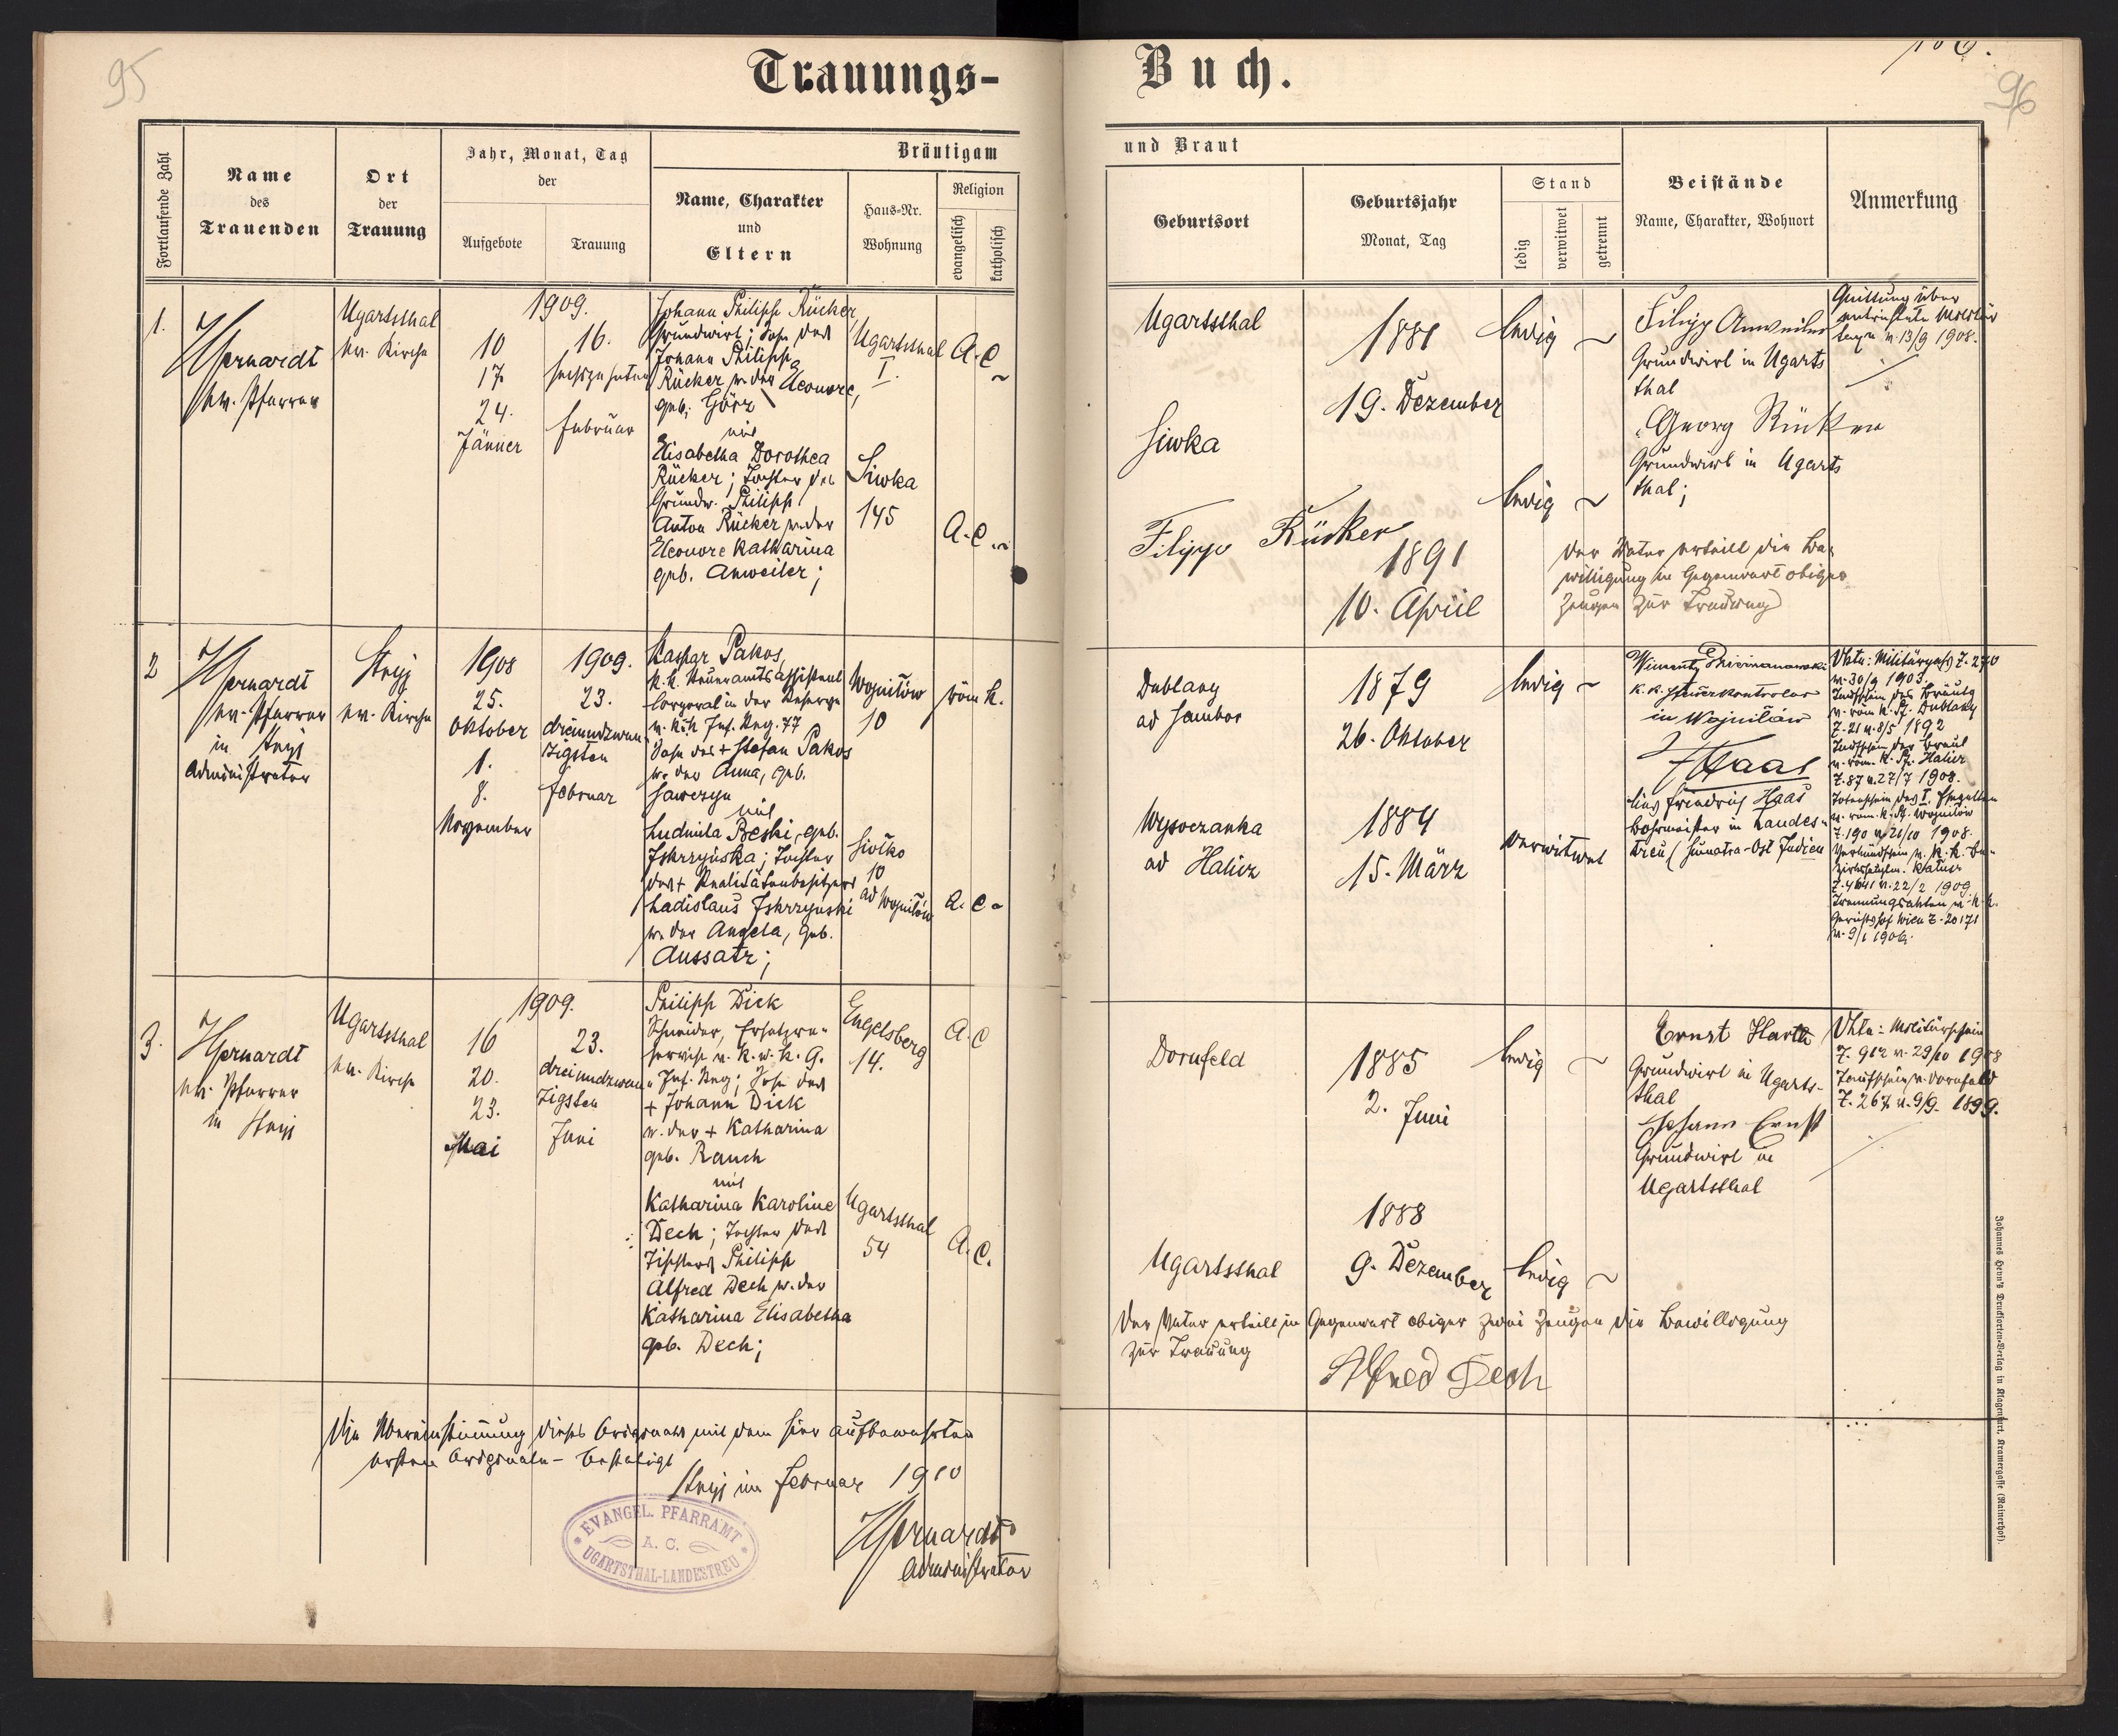 95
Trauungs-
Buch.
96
Fortlaufende Zahl
Name
des
Trauenden
Ort
der
Trauung
Jahr, Monat, Tag
der
Aufgebote
Trauung
Bräutigam
Name, Charakter
und
Eltern
Haus-Nr.
Wohnung
Religion
evangelisch
katholisch
und Braut
Geburtsort
Geburtsjahr
Monat, Tag
Stand
ledig
verwitwet
getrennt
Beistände
Name, Charakter, Wohnort
Anmerkung
1.
ev. Pfarrer
Ugartsthal
ev. Kirche
1909.
10
17
24.
Jänner
16.
sechszehnten
Februar
Johann Philipp Rücker,
Grundwirt; Sohn des
Johann Philipp
Rücker u. der Eleonore,
geb. Görz
mit
Elisabetha Dorothea
Rücker; Tochter des
Grundw. Philipp
Anton Rücker u. der
Eleonore Katharina
geb. Anweiler;
Ugartsthal
I.
Siwka
145
A. C.
A. C.
Ugartsthal
Siwka
1881
19. Dezember
1891
10. April
ledig
ledig
Filipp Rücker
Filipp Anweiler
Grundwirt in Ugarts
thal
Georg Rücker
Grundwirt in Ugarts
thal;
Der Vater erteilt die Be-
willigung in Gegenwart obiger
Zeugen zur Trauung
Quittung über
v. 13/9 1908.
2
ev. Pfarrer
in Stryj
Administrator
Stryj
ev. Kirche
1908
25.
Oktober
1.
8.
November
1909.
23.
dreiundzwan
zigsten
Februar
Kaspar Pakos,
k. k. Steueramtsassistent
Corporal in der Reserve
d. k. u. k. Inf. Reg. 77
Sohn des + Stefan Pakos
u. der Anna, geb.
mit
Ludmila Beski, geb.
Iskrzyńska; Tochter
des + Realitätenbesitzers
Ladislaus Iskrzyński
u. der Angela, geb.
Aussatz;
Wojniłów
10
10
ad Wojniłów
röm. k.
A. C.
Dublany
ad Sambor
Wysoczanka
ad Halicz
1879
26. Oktober
1884
15. März
ledig
verwitwet
in Wojniłów
Haas
Friedrich Haas
Bohrmeister in Landes-
treu (Sumatra-Ost Indien
v. 30/9 1903.
Taufschein des Bräutg
v. röm. k. Pf. Dublany
Z. 21 v. 8/5 1892
Taufschein der Braut
v. röm. k. Pf. Halicz
Z. 87 v. 27/7 1908.
Z. 190 v. 21/10 1908.
v. 22/2 1909
Gerichtshof Wien Z. 20171
v. 9/1 1906.
3.
ev. Pfarrer
in Stryj
Ugartsthal
ev. Kirche
1909.
16
20.
23.
Mai
23.
dreiundzwan
zigsten
Juni
Philipp Dick
Schneider, Ersatzre-
servist d. k. u. k. 9.
Inf. Reg; Sohn des
+ Johann Dick
u. der + Katharina
geb. Rauch
mit
Katharina Karoline
Dech; Tochter des
Tischlers Philipp
Alfred Dech u. der
Katharina Elisabetha
geb. Dech;
Engelsberg
14.
Ugartsthal
54
A. C
A. C.
Dornfeld
Ugartsthal
1885
2. Juni
1888
9. Dezember
ledig
ledig
Grundwirt in Ugarts-
thal
Johann Ernst
Grundwirt in
Ugartsthal
Z. 912 v. 29/10 1908
Taufschein v. Dornfeld
Z. 267. v. 9/9. 1899.
Der Vater erteilt in Gegenwart obiger zwei Zeugen die Bewilligung
zur Trauung
Alfred Dech
Die Übereinstimmung dieses Originals mit dem hier aufbewahrten
ersten Originale - bestätigt
Stryj im Februar 1910
Administrator
EVANGEL. PFARRAMT
A. C.
UGARTSTHAL-LANDESTREU
Johannes Heyn's Drucksorten-Verlag in Klagenfurt, Kramergasse (Rainerhof).